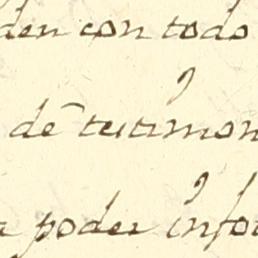 den con todo
de testimon
a poder infor